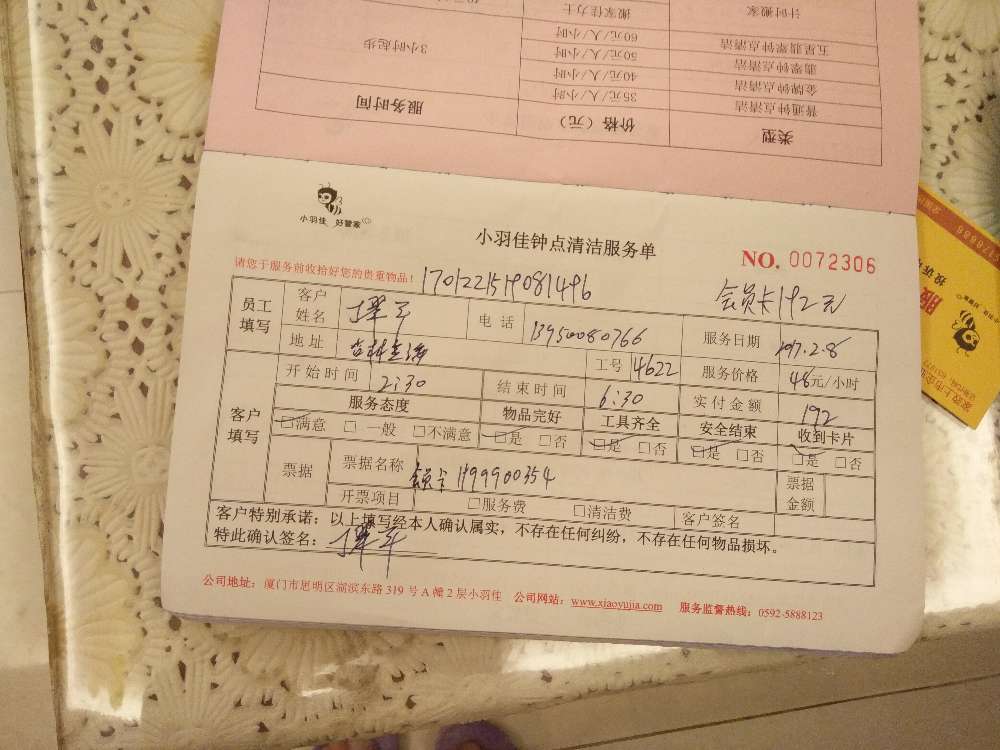 计时搬家 搬家佳力士
五星翡翠钟点清洁 60元/人/小时
翡翠钟点清洁 50元/人/小时 3小时起步
金牌钟点清洁 40元/人/小时
普通钟点清洁 35元/人/小时
类型 价格（元） 服务时间
小羽佳 好管家
小羽佳钟点清洁服务单
NO. 0072306
请您于服务前收拾好您的贵重物品！
会员卡192元
员工填写 客户姓名 电话 13950080766 服务日期
地址 工号 4622 服务价格 48元/小时
客户填写 开始时间 2:30 结束时间 6:30 实付金额 192
服务态度 物品完好 工具齐全 安全结束 收到卡片
□满意 □一般 □不满意 □是 □否 □是 □否 □是 □否 □是 □否
票据 票据名称 票据金额
开票项目 □服务费 □清洁费 客户签名
客户特别承诺：以上填写经本人确认属实，不存在任何纠纷，不存在任何物品损坏。
特此确认签名：
公司地址：厦门市思明区湖滨东路319号A幢2层小羽佳 公司网站：www.xiaoyujia.com 服务监督热线：0592-5888123